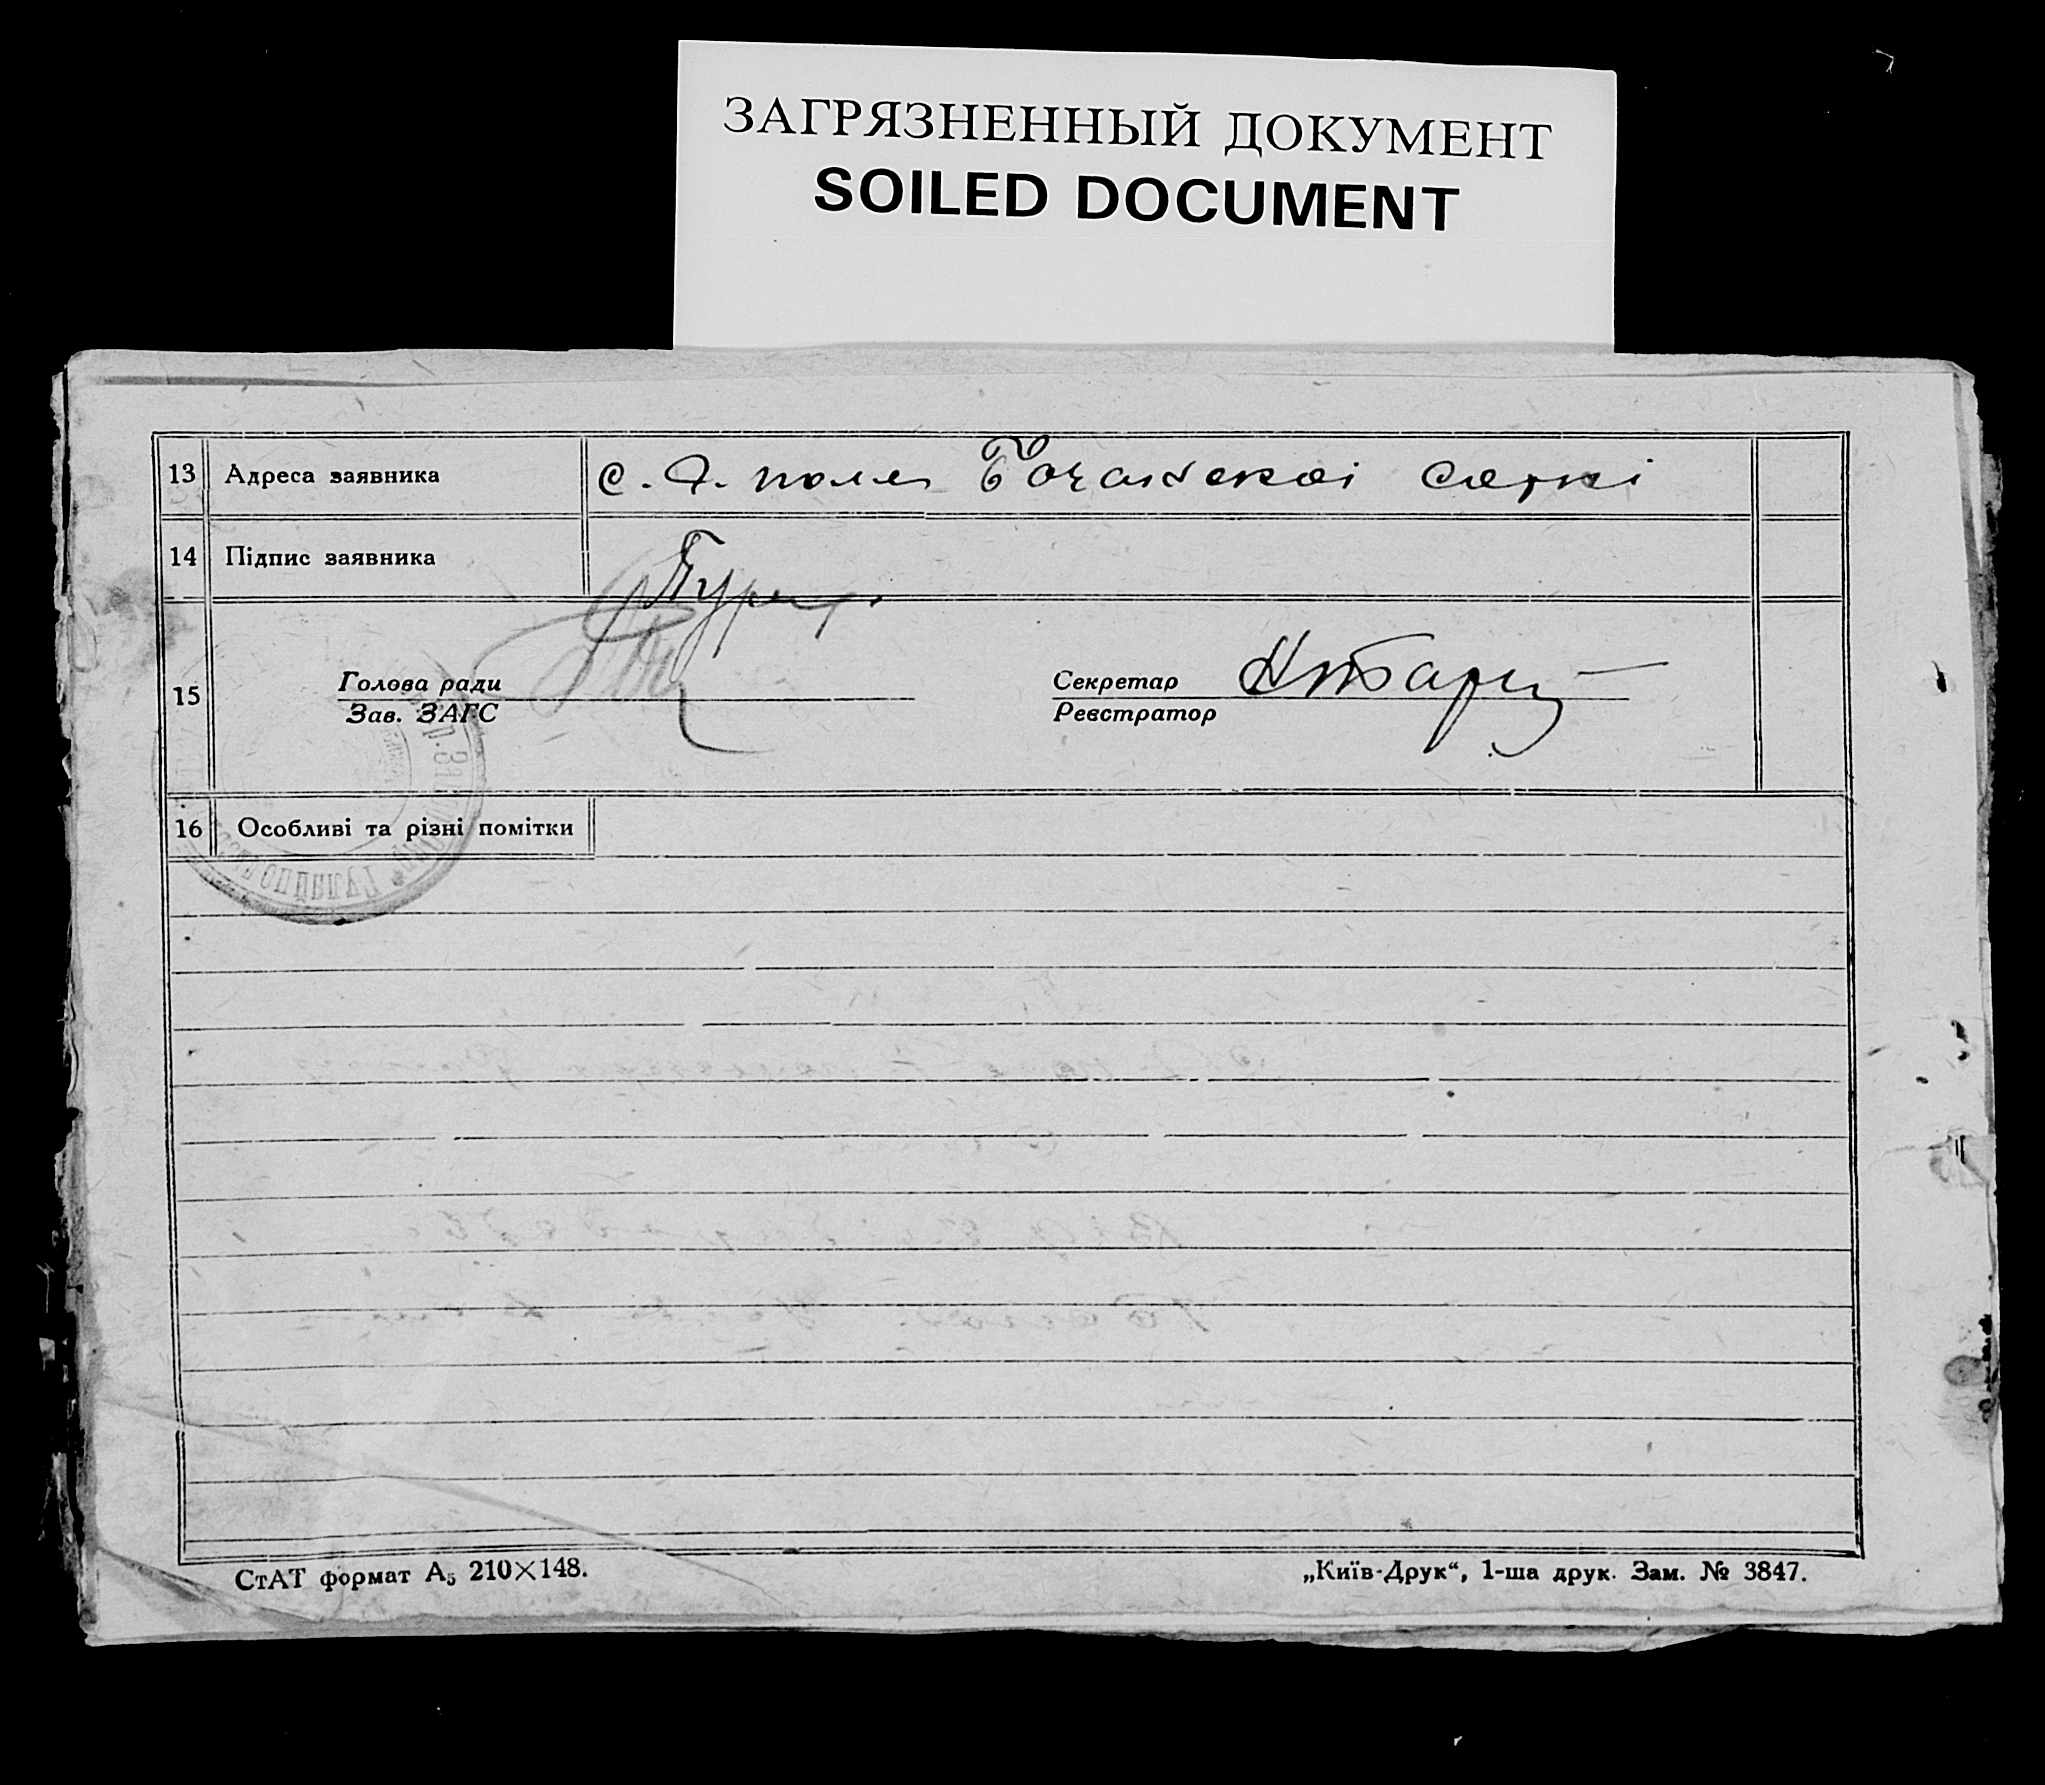 ЗАГРЯЗНЕННЫЙ ДОКУМЕНТ
SOILED DOCUMENT
13 Адреса заявника с. Д. поле
14 Підпис заявника
15 Голова ради Секретар
Зав. ЗАГС Реєстратор
16 Особливі та різні помітки
СтАТ формат А₅ 210×148. „Київ-Друк“, 1-ша друк. Зам. № 3847.